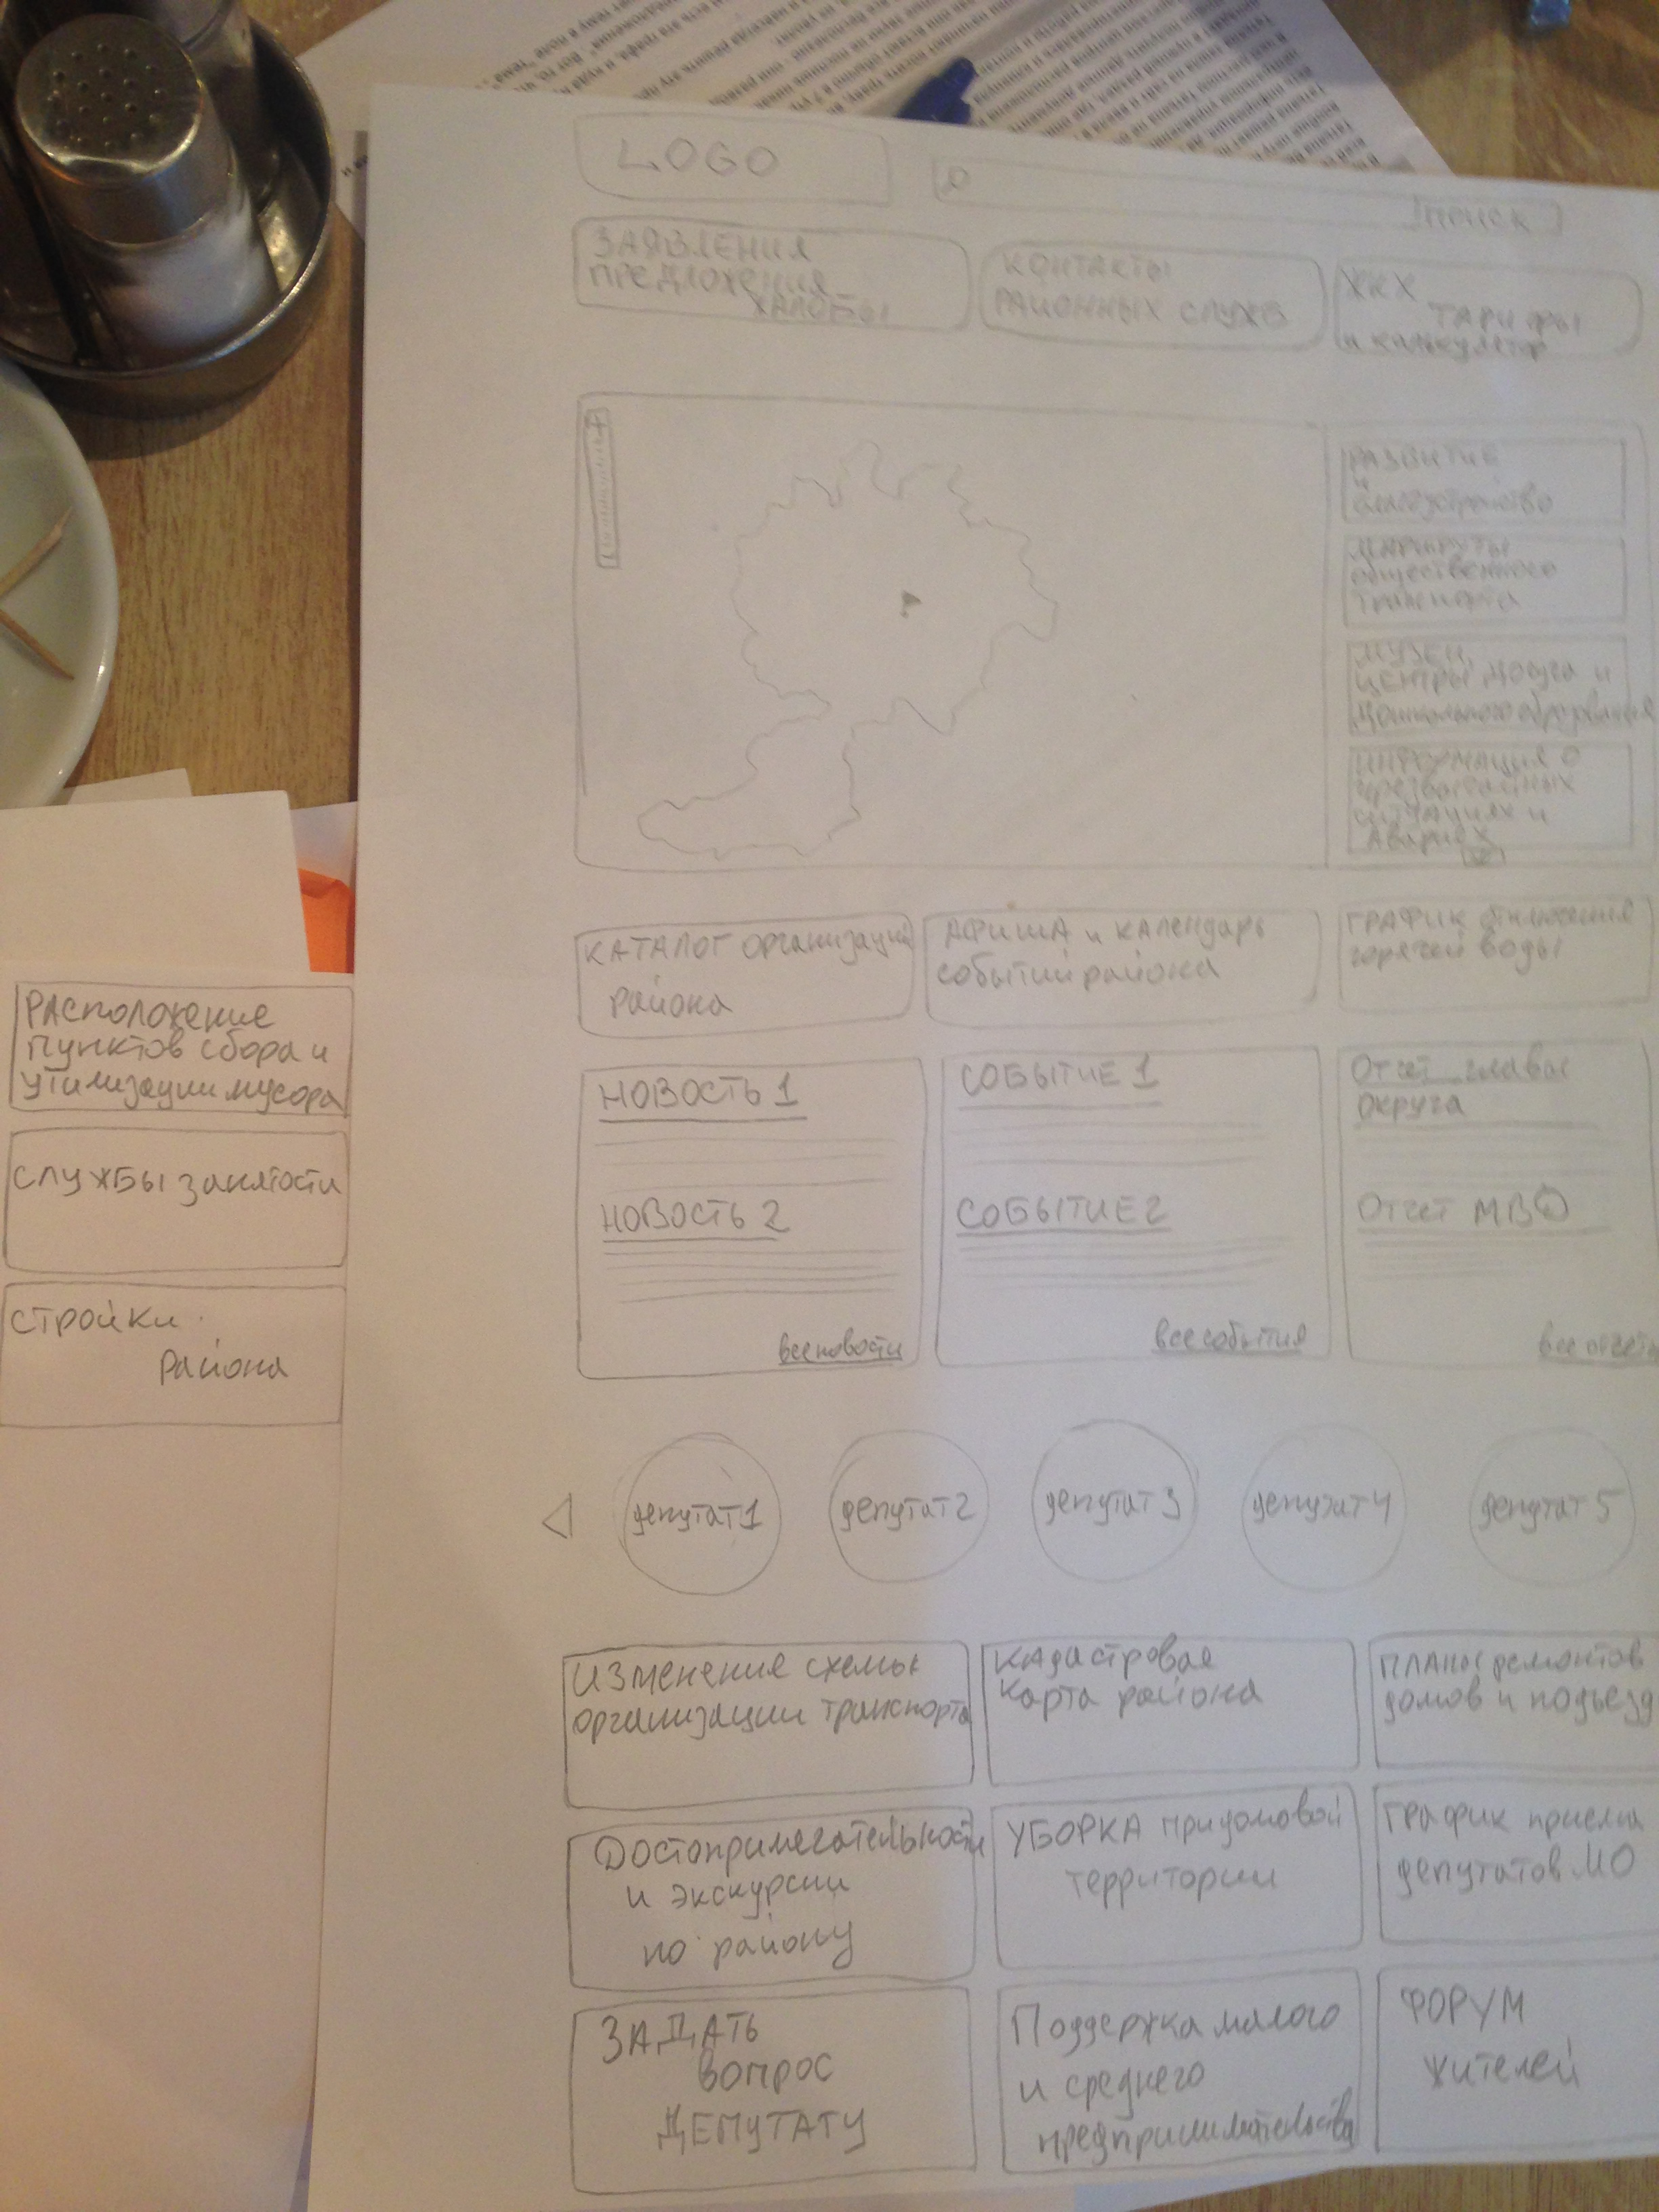 LOGO
поиск
ЗАЯВЛЕНИЯ
ПРЕДЛОЖЕНИЯ
ЖАЛОБЫ
КОНТАКТЫ
РАЙОННЫХ СЛУЖБ
ЖКХ
ТАРИФЫ
и калькулятор
РАЗВИТИЕ
и
благоустройство
МАРШРУТЫ
общественного
транспорта
МУЗЕИ,
ЦЕНТРЫ досуга и
Дошкольного образования
ИНФОРМАЦИЯ О
чрезвычайных
ситуациях и
Авариях
КАТАЛОГ организаций
района
АФИША и календарь
событий района
ГРАФИК отключения
горячей воды
НОВОСТЬ 1
НОВОСТЬ 2
все новости
СОБЫТИЕ 1
СОБЫТИЕ 2
все события
Отчет главы
округа
Отчет МВД
все отчеты
депутат 1
депутат 2
депутат 3
депутат 4
депутат 5
Изменения схемы
организации транспорта
Кадастровая
карта района
ПЛАНЫ ремонтов
домов и подъезд
Достопримечательности
и экскурсии
по району
УБОРКА придомовой
территории
График приема
депутатов МО
ЗАДАТЬ
вопрос
ДЕПУТАТУ
Поддержка малого
и среднего
предпринимательства
ФОРУМ
жителей
РАСПОЛОЖЕНИЕ
пунктов сбора и
утилизации мусора
Службы занятости
СТРОЙКИ
района